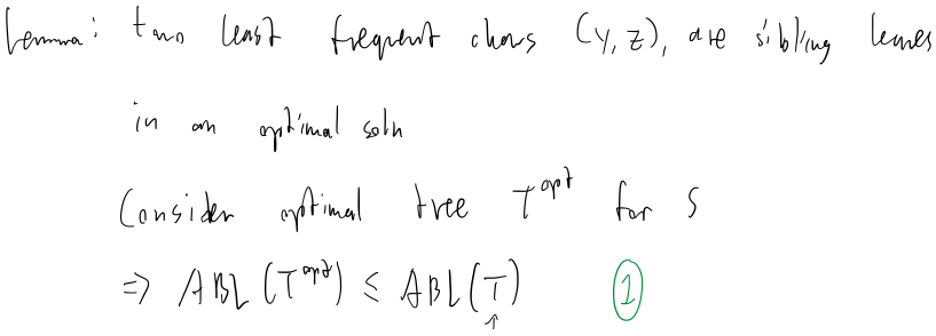 Lemma: two least frequent chars (y, z), are sibling leaves
in an optimal soln
Consider optimal tree T^opt for S
=> ABL(T^opt) ≤ ABL(T) ①
↑